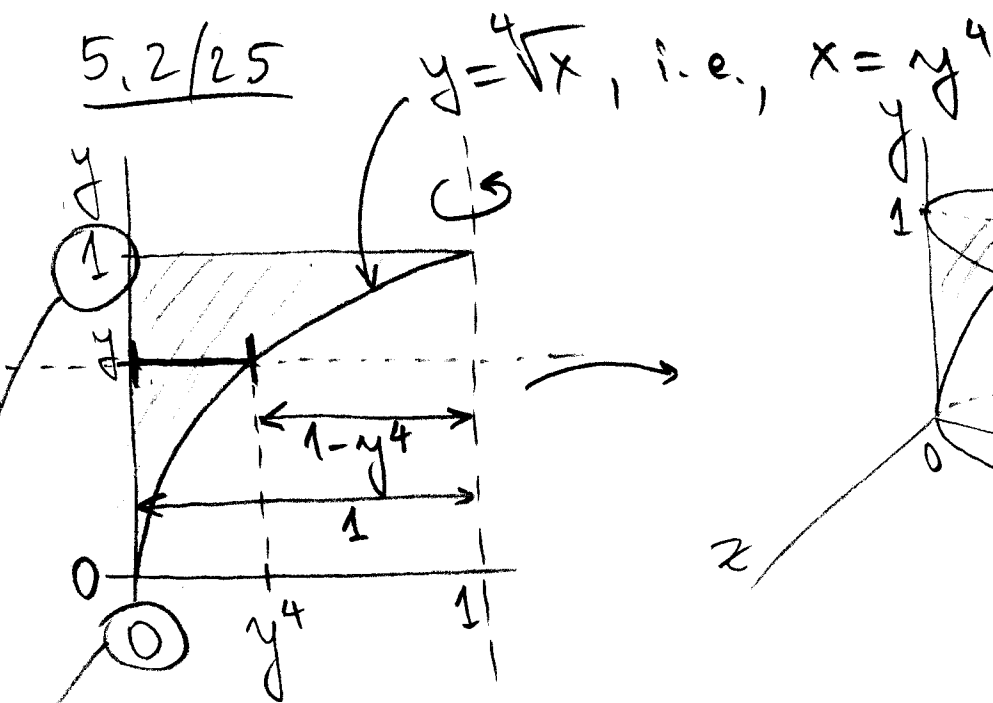 5.2/25
y = ∜x, i.e., x = y⁴
y
1
y
1-y⁴
1
0
0
y⁴
1
y
1
0
z